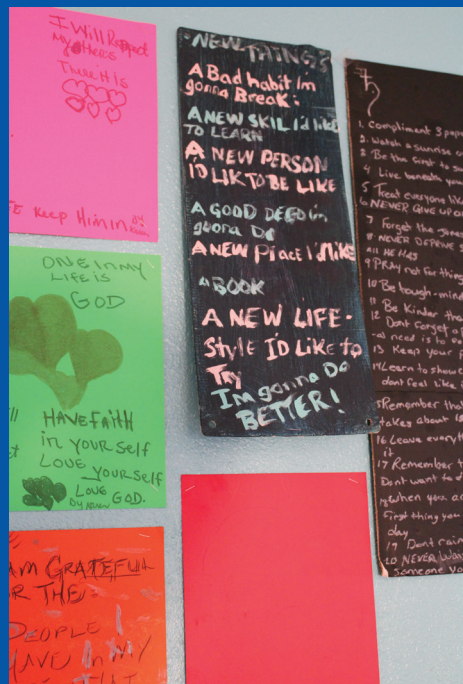 I Will Respect
My others
There It is
Keep Him in
BY
ONE IN MY
LIFE IS
GOD
HAVE FAITH
in YOUR SELF
LOVE YOURSELF
LOVE GOD.
By
AM GRATEFUL
OR THE
PEOPLE I
HAVE In MY
NEW THINGS
A Bad habit Im
gonna Break:
A NEW SKIL I'd like
TO LEARN
A NEW PERSON
I'D LIK TO BE LIKE
A GOOD DEED im
gonna Do
A NEW Place I'd like
A BOOK
A NEW LIFE-
Style I'D Like to
Try
Im gonna Do
BETTER!
1. Compliment 3
2. Watch a sunrise
3. Be the first to
4 Live beneath
5 Treat everyone
6 NEVER GIVE UP
7 Forget the
8 NEVER DEPRIVE
HE HAS
9 PRAY not for
10 Be tough-
11 Be Kinder
12 Dont Forget
need is to
13 Keep your
14 Learn to
dont feel like
15 Remember
takes about
16 Leave
it
17 Remember
Dont want to
when you
First thing you
day
19 Dont
20 NEVER
Someone